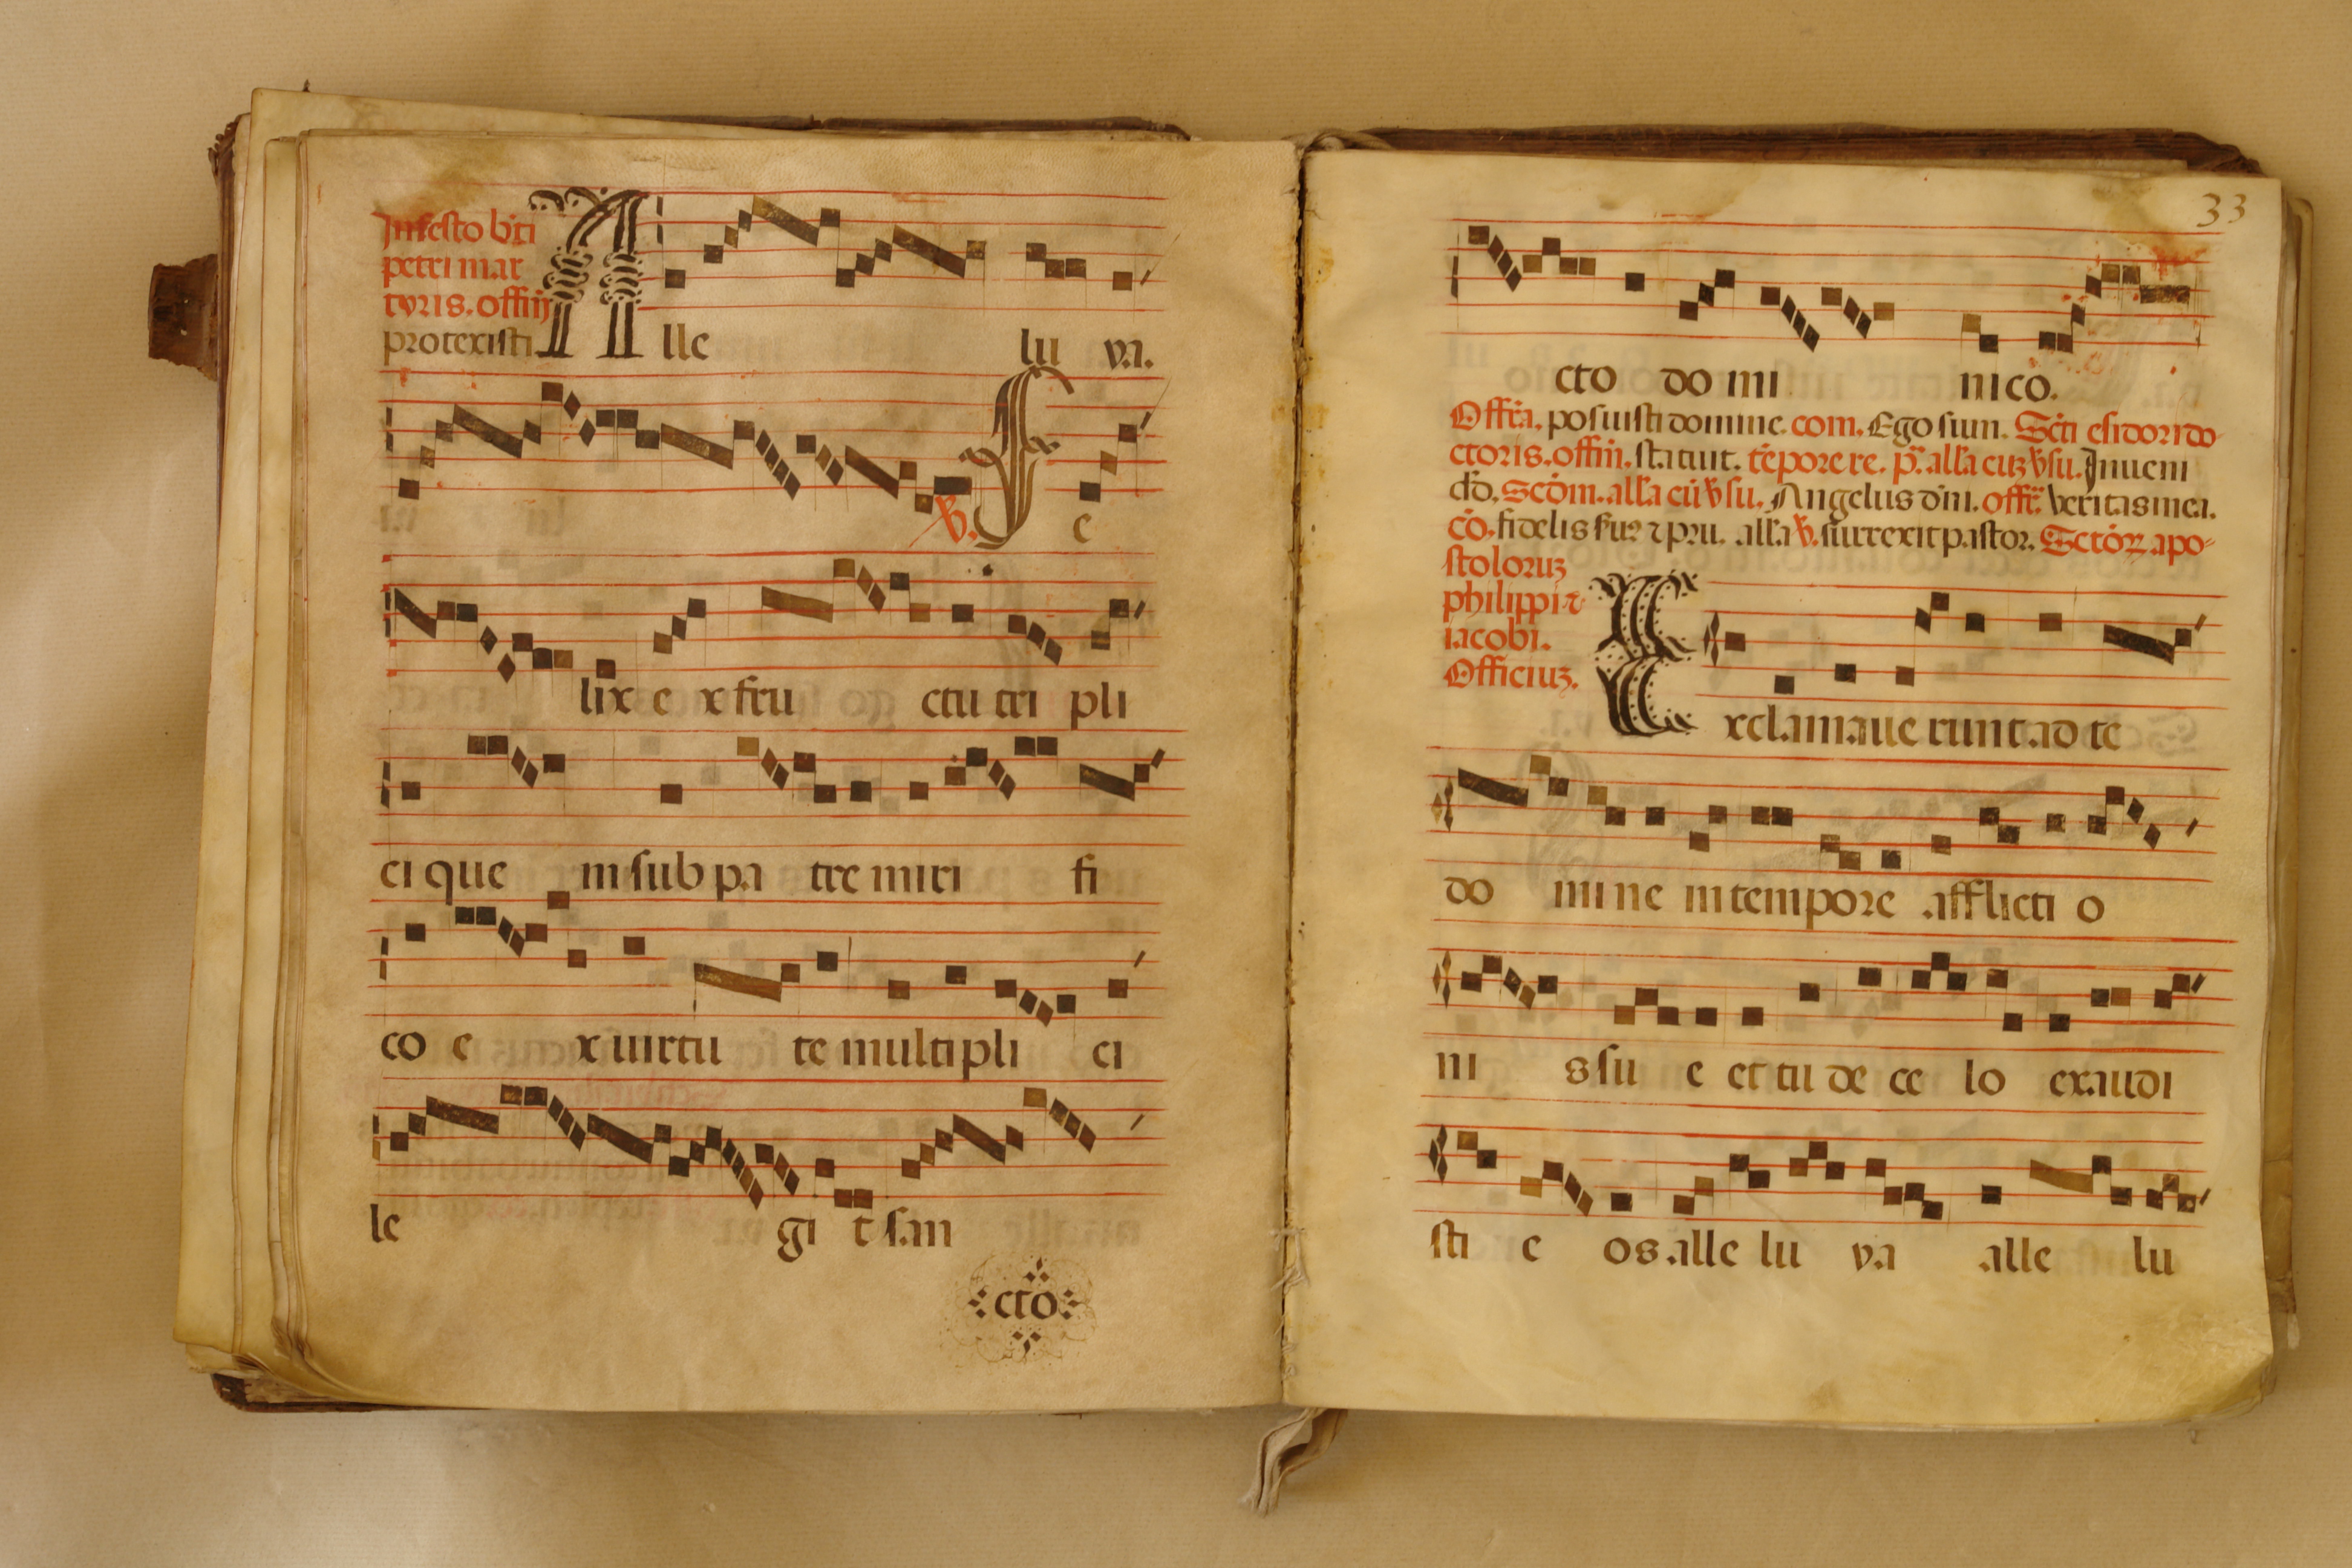 In festo bti
petri mar
tyris. offm
protexisti. A lle lu ya.
V. F e
lix e x fru ctu tri pli
ci que m sub pa tre miri fi
co e x uirtu te multipli ci
le gi t san
cto
33
cto do mi nico.
Offa. posuisti domine. com. Ego sum. Scti esidori do
ctoris. offm. statuit. tepore re. p. alla cuz vsu. Inueni
dd. Scdm. alla cu vsu. Angelus dni. offr. veritas mea.
co. fidelis alla v. surrexit pastor. Sctorz apo-
stoloruz
philippi z
iacobi.
Officiuz.
E xclamaue runt ad te
do mi ne in tempore afflicti o
ni s su e et tu de ce lo exaudi
sti e os alle lu ya alle lu